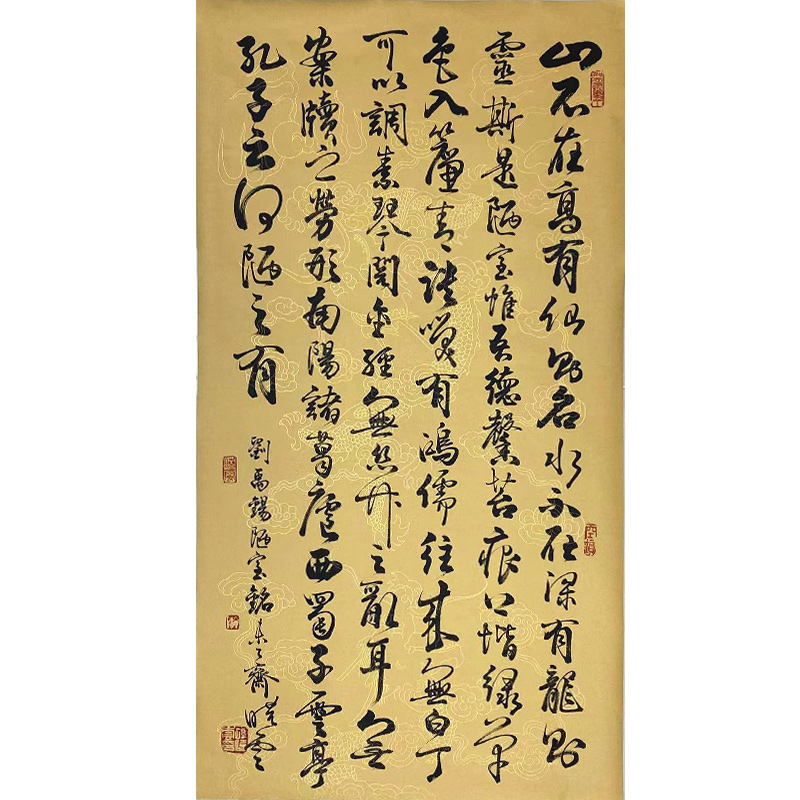 山不在高有仙則名水不在深有龍則
靈斯是陋室惟吾德馨苔痕上堦綠草
色入簾青談笑有鴻儒往來無白丁
可以調素琴閱金經無絲竹之亂耳無
案牘之勞形南陽諸葛廬西蜀子雲亭
孔子云何陋之有
劉禹錫陋室銘齋曉雲